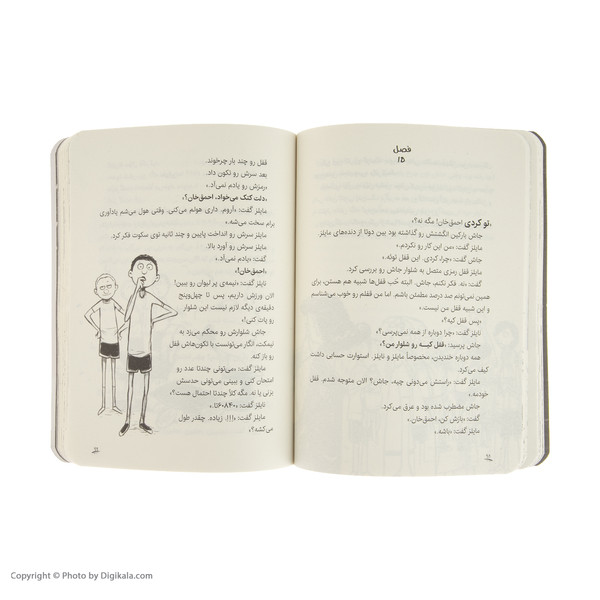 فصل
۱۵
«تو کردی احمق‌خان! مگه نه؟»
جاش بارکین انگشتش رو گذاشته بود بین دوتا از دنده‌های مایلز
مایلز گفت: «من این کار رو نکردم.»
جاش گفت: «چرا، کردی. این قفل توئه.»
مایلز قفل رمزی متصل به شلوار جاش رو بررسی کرد.
گفت: «نه. فکر نکنم، جاش. البته خب قفل‌ها شبیه هم هستن، برای
همین نمی‌تونم صد درصد مطمئن باشم. اما من قفلم رو خوب می‌شناسم
و این شبیه قفل من نیست.»
«پس قفل کیه؟»
نایلز گفت: «چرا دوباره از همه نمی‌پرسی؟»
جاش پرسید: «قفل کیـه رو شلوار من؟»
همه دوباره خندیدن، مخصوصاً مایلز و نایلز. استوارت حسابی داشت
کیف می‌کرد.
مایلز گفت: «راستش می‌دونی چیه، جاش؟ الان متوجه شدم. قفل
خودمه.»
جاش مضطرب شده بود و عرق می‌کرد.
گفت: «بازش کن، احمق‌خان.»
مایلز گفت: «باشه.»
قفل رو چند بار چرخوند.
بعد سرش رو تکون داد.
«رمزش رو یادم نمی‌آد.»
«دلت کتک می‌خواد، احمق‌خان؟»
مایلز گفت: «آروم. داری هولم می‌کنی. وقتی هول می‌شم یادآوری
برام سخت می‌شه.»
مایلز سرش رو انداخت پایین و چند ثانیه توی سکوت فکر کرد.
مایلز سرش رو آورد بالا.
گفت: «یادم نمی‌آد.»
«احمق‌خان!»
نایلز گفت: «نیمه‌ی پر لیوان رو ببین!
الان ورزش داریم، پس تا چهل‌وپنج
دقیقه‌ی دیگه لازم نیست این شلوار
رو پات کنی!»
جاش شلوارش رو محکم می‌زد به
نیمکت، انگار می‌تونست با تکون‌هاش قفل
رو باز کنه.
مایلز گفت: «می‌تونی چندتا عدد رو
امتحان کنی و ببینی می‌تونی حدسش
بزنی یا نه. مگه کلاً چندتا احتمال هست؟»
نایلز گفت: «۶۰۸۴۰تا.»
مایلز گفت: «!!!. زیاده. چقدر طول
می‌کشه؟»
Copyright © Photo by Digikala.com